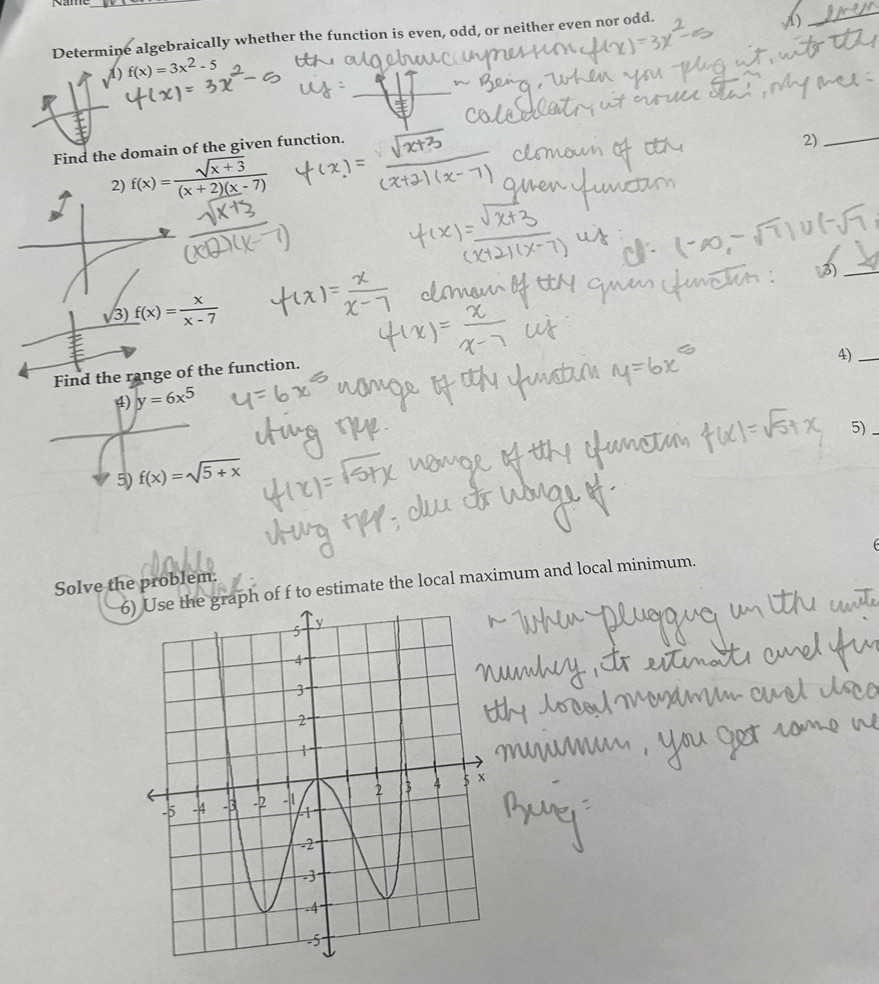 Name
Determine algebraically whether the function is even, odd, or neither even nor odd.
1) f(x) = 3x² - 5
f(x) = 3x² - 5
the algebraic expression f(x) = 3x² - 5
is: ~ Being, when you plug it, into the
1) even
Find the domain of the given function.
2) f(x) = √(x + 3) / ((x + 2)(x - 7))
f(x) = √(x+3) / ((x+2)(x-7)) domain of the
given function
2)
√(x+3)
f(x) = √(x+3) / ((x+2)(x-7)) is:
3) f(x) = x / (x - 7)
f(x) = x / (x-7) domain of the given function:
f(x) = x / (x-7) is:
3)
Find the range of the function.
4) y = 6x⁵
y = 6x⁵ range of the function y = 6x⁵
4)
5) f(x) = √(5 + x)
f(x) = √(5+x) range of the function f(x) = √(5+x,
5)
due to range of.
Solve the problem.
6) Use the graph of f to estimate the local maximum and local minimum.
5 y
4
3
2
1
-5 -4 -3 -2 -1 2 3 4 5 x
-1
-2
-3
-4
-5
~ When plugging in the
number, to estimate and
the local maximum and
minimum, you get same
Being: